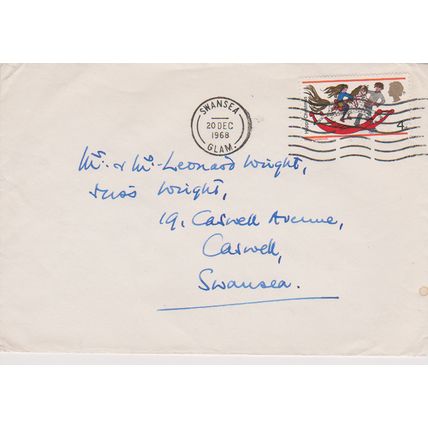 SWANSEA
20 DEC
1968
GLAM.
4d
Mr. & Mrs. Leonard Wright,
& Miss Wright,
19, Caswell Avenue,
Caswell,
Swansea.